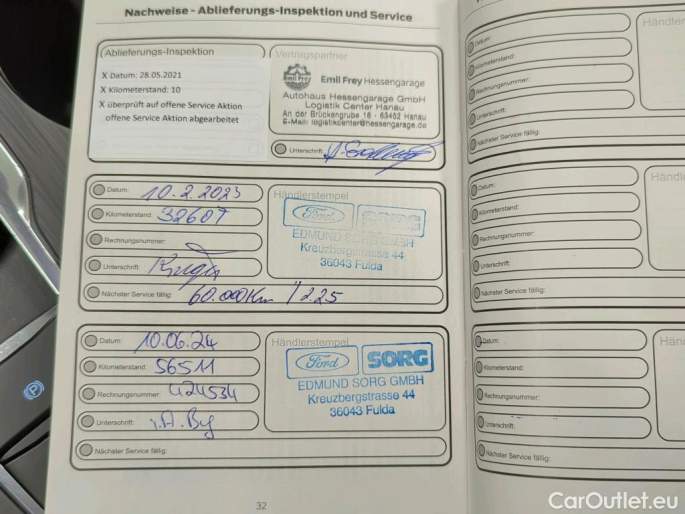 Nachweise - Ablieferungs-Inspektion und Service
Ablieferungs-Inspektion
X Datum: 28.05.2021
X Kilometerstand: 10
X überprüft auf offene Service Aktion
offene Service Aktion abgearbeitet
Vertragspartner
Emil Frey
Emil Frey Hessengarage
Autohaus Hessengarage GmbH
Logistik Center Hanau
An der Brückengrube 18 - 63452 Hanau
E-Mail: logistikcenter@hessengarage.de
Unterschrift:
Datum: 10.2.2023
Kilometerstand: 32607
Rechnungsnummer:
Unterschrift:
Nächster Service fällig: 60.000Km // 2.25
Händlerstempel
Ford SORG
EDMUND SORG GMBH
Kreuzbergstrasse 44
36043 Fulda
Datum: 10.06.24
Kilometerstand: 56511
Rechnungsnummer: 424534
Unterschrift: i.A.
Nächster Service fällig:
Händlerstempel
Ford SORG
EDMUND SORG GMBH
Kreuzbergstrasse 44
36043 Fulda
32
Datum:
Kilometerstand:
Rechnungsnummer:
Unterschrift:
Nächster Service fällig:
Datum:
Kilometerstand:
Rechnungsnummer:
Unterschrift:
Nächster Service fällig:
Händle
Datum:
Kilometerstand:
Rechnungsnummer:
Unterschrift:
Nächster Service fällig:
Hän
CarOutlet.eu